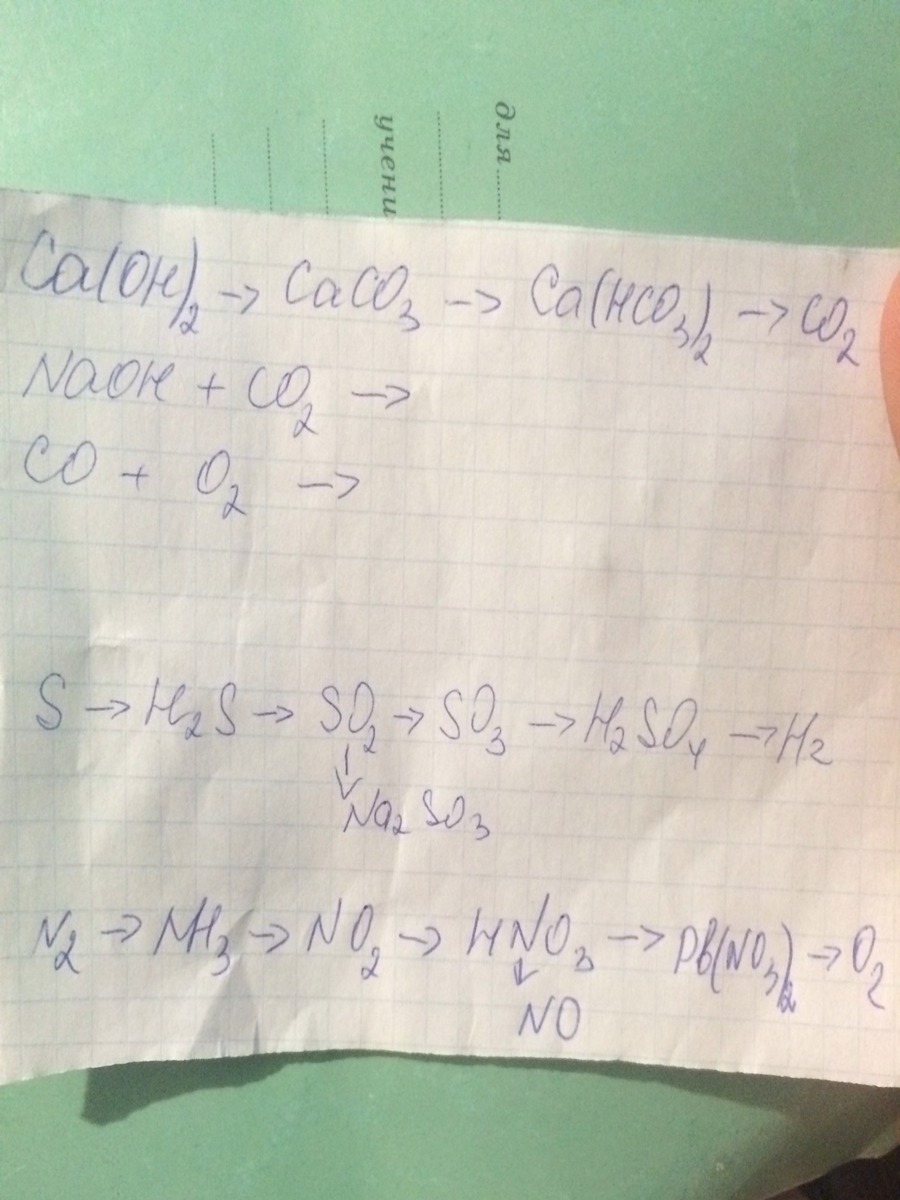 для
учени
Ca(OH)₂ -> CaCO₃ -> Ca(HCO₃)₂ -> CO₂
NaOH + CO₂ ->
CO + O₂ ->
S -> H₂S -> SO₂ -> SO₃ -> H₂SO₄ -> H₂
↓
Na₂SO₃
N₂ -> NH₃ -> NO₂ -> HNO₃ -> Pb(NO₃)₂ -> O₂
↓
NO